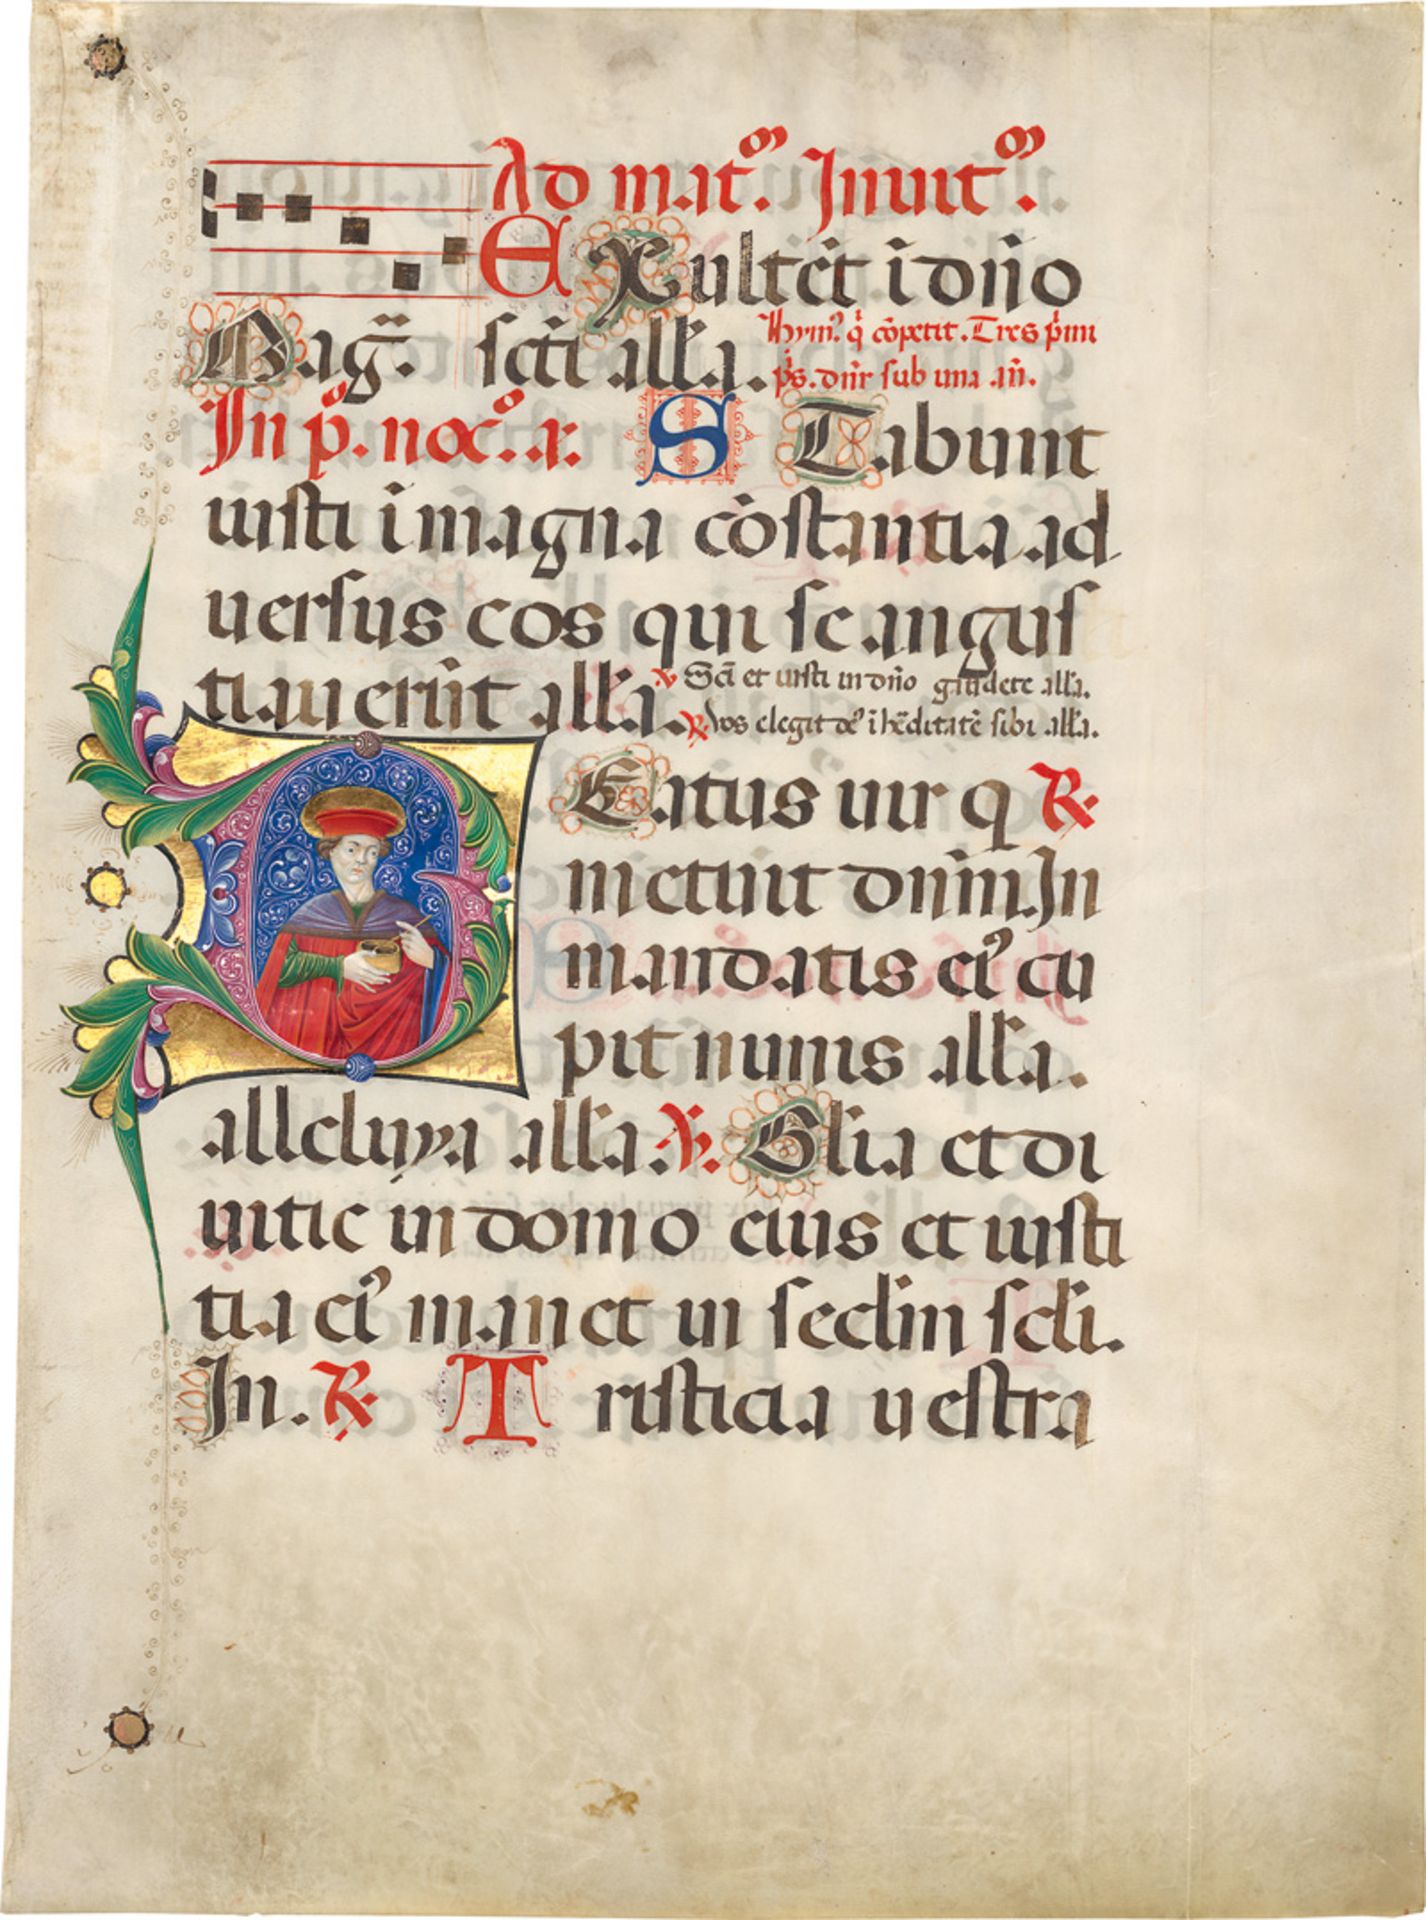 Ad mat⁹. Inuit⁹.
E Xultēt ī dn̄o
Mag̅. sct̄i all̄a. Hym⁹. q̄ cōpetit. Tres p̄mi
p̄s. dn̄r sub una an̄.
In p̊. noc̊. a. S Tabunt
iusti ī magna cōstantia ad
uersus eos qui se angus
tiauerūt all̄a. ℣ Sct̄i et iusti in dn̄o gaudete all̄a.
℟. Vos elegit de⁹ ī hēditatē sibi all̄a.
Eatus uir q ℟.
metuit dn̄m. In
mandatis ei⁹ cu
pit nimis all̄a.
alleluya all̄a. ℣. Gl̄ia et di
uitie in domo eius et iusti
tia ei⁹ manet in secl̄m scl̄i.
In. ℟. Tristicia uestra